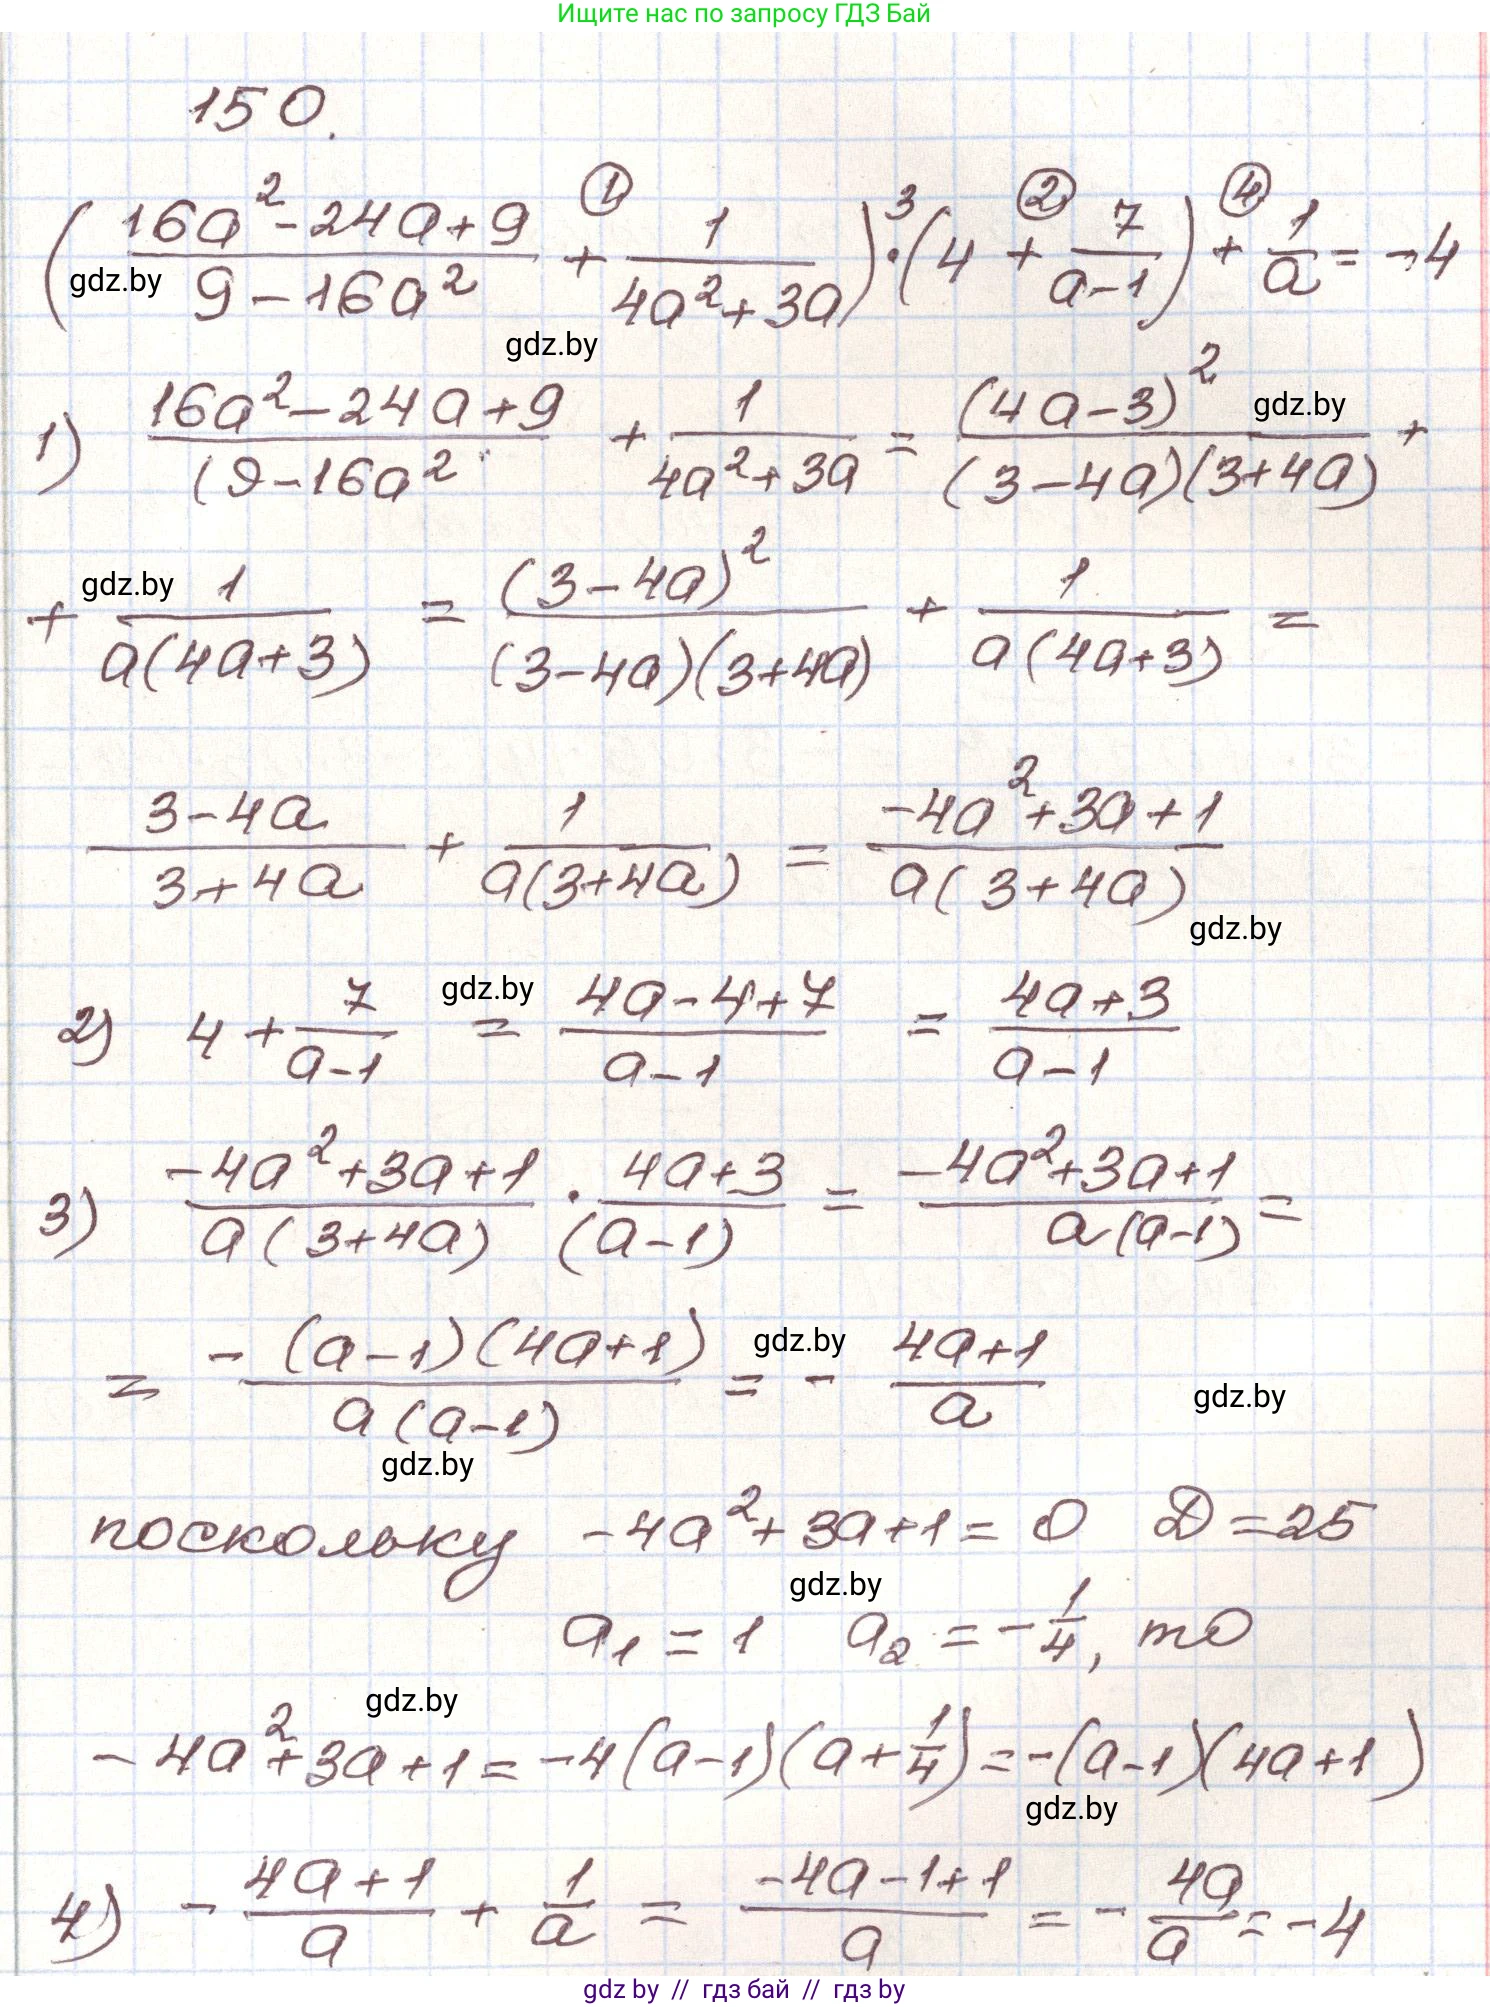 Ищите нас по запросу ГДЗ Бай
150.
(16a² - 24a + 9 / 9 - 16a² + 1 / 4a² + 3a) · (4 + 7 / a - 1) + 1 / a = -4
① ③ ② ④
gdz.by
gdz.by
1) 16a² - 24a + 9 / (9 - 16a² + 1 / 4a² + 3a = (4a - 3)² / (3 - 4a)(3 + 4a) +
gdz.by
+ 1 / a(4a + 3) = (3 - 4a)² / (3 - 4a)(3 + 4a) + 1 / a(4a + 3) =
gdz.by
3 - 4a / 3 + 4a + 1 / a(3 + 4a) = -4a² + 3a + 1 / a(3 + 4a)
gdz.by
2) 4 + 7 / a - 1 = 4a - 4 + 7 / a - 1 = 4a + 3 / a - 1
gdz.by
3) -4a² + 3a + 1 / a(3 + 4a) · 4a + 3 / (a - 1) = -4a² + 3a + 1 / a(a - 1) =
= - (a - 1)(4a + 1) / a(a - 1) = - 4a + 1 / a
gdz.by
gdz.by
gdz.by
поскольку -4a² + 3a + 1 = 0 D = 25
gdz.by
a₁ = 1 a₂ = -1/4, то
gdz.by
-4a² + 3a + 1 = -4(a - 1)(a + 1/4) = -(a - 1)(4a + 1)
gdz.by
4) - 4a + 1 / a + 1 / a = -4a - 1 + 1 / a = - 4a / a = -4
gdz by // гдз бай // гдз by